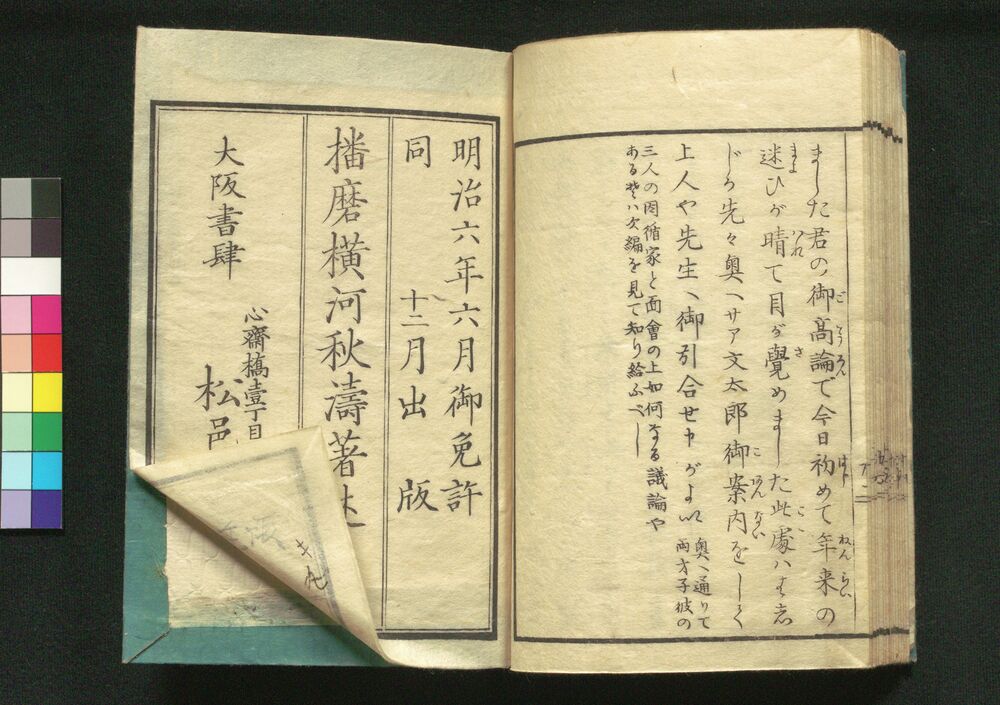 ました君の御高論で今日初めて年来の
迷ひが晴て目が覚めました此處ハ
じや先々奥へサア文太郎御案内をして
上人や先生へ御引合せ申がよい
奥へ通りて
両才子彼の
三人の因循家と面會の上如何なる議論や
ある そハ次編を見て知り給ふべし
明治六年六月御免許
同 十二月出版
播磨横河秋濤著述
大阪書肆
心齋橋壹丁目
松邑